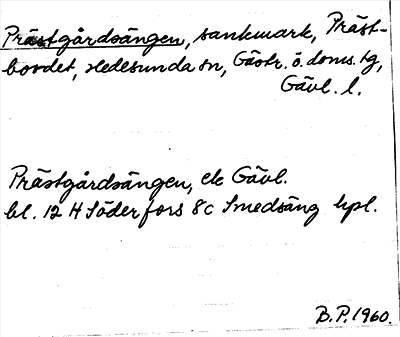 Prästgårdsängen, sankmark, Präst-
bordet, Hedesunda sn, Gästr. ö. doms. tg,
Gävl. l.
Prästgårdsängen, ek Gävl.
bl. 12 H Söderfors 8c Smedsäng hpl.
B.P. 1960.